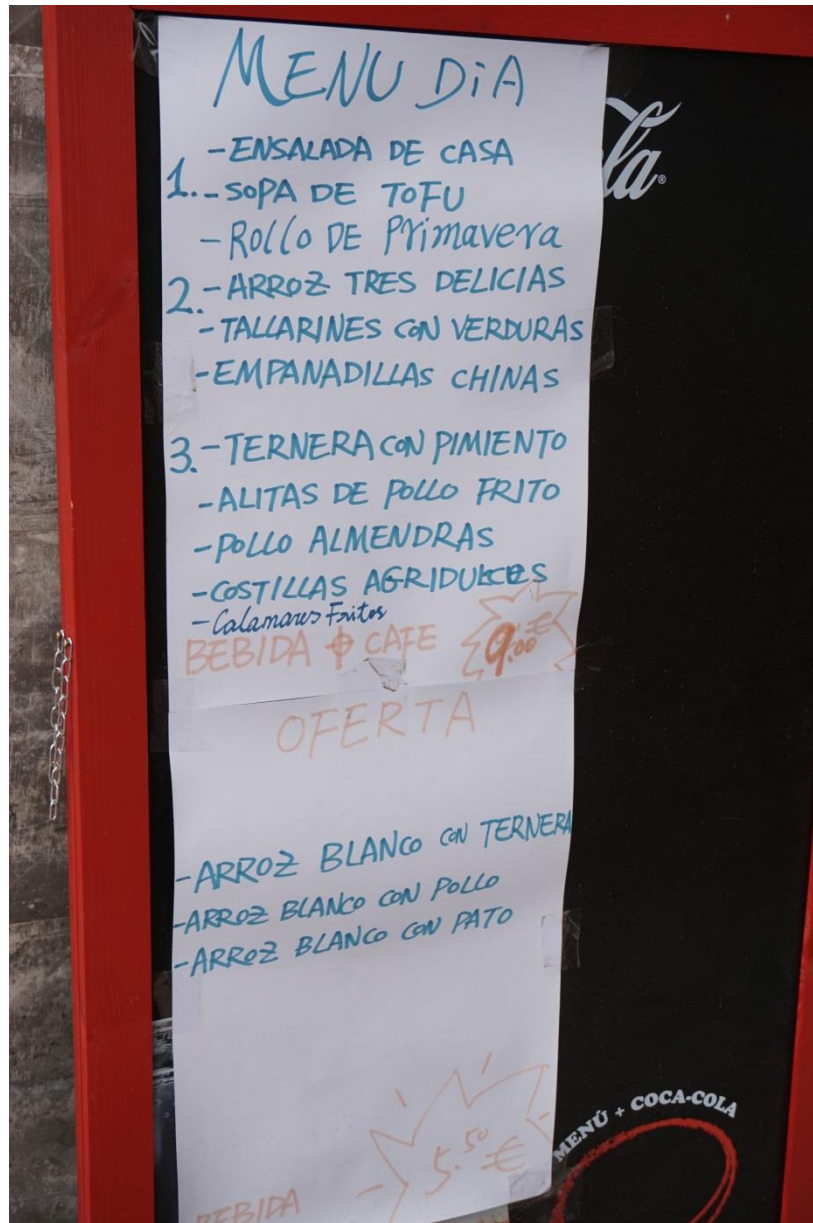 MENU DiA
- ENSALADA DE CASA
1. - SOPA DE TOFU
- Rollo DE Primavera
2. - ARROZ TRES DELICIAS
- TALLARINES CON VERDURAS
- EMPANADILLAS CHINAS
3. - TERNERA CON PIMIENTO
- ALITAS DE POLLO FRITO
- POLLO ALMENDRAS
- COSTILLAS AGRIDULCES
- Calamares Fritos
BEBIDA CAFE 9'00 €
OFERTA
- ARROZ BLANCO CON TERNERA
- ARROZ BLANCO CON POLLO
- ARROZ BLANCO CON PATO
5.50 €
BEBIDA
la
MENÚ + COCA-COLA